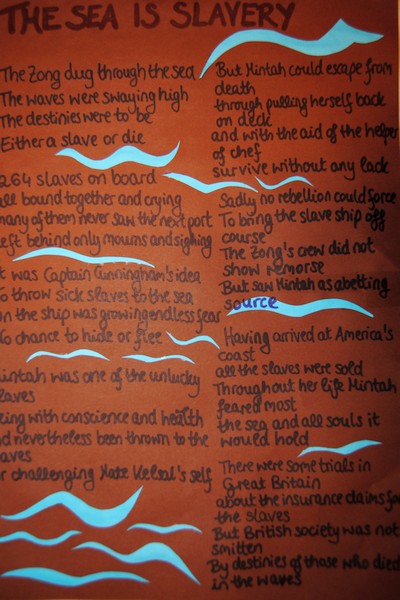 THE SEA IS SLAVERY
The Zong dug through the sea
The waves were swaying high
The destinies were to be
Either a slave or die
264 slaves on board
all bound together and crying
many of them never saw the next port
eft behind only mourns and sighing
t was Captain Cunningham's idea
To throw sick slaves to the sea
on the ship was growing endless fear
No chance to hide or flee
Mintah was one of the unlucky
slaves
eing with conscience and health
nd nevertheless been thrown to the
waves
r challenging Kelsal's self
But Mintah could escape from
death
through pulling herself back
on deck
and with the aid of the helper
of chef
survive without any lack
Sadly no rebellion could force
To bring the slave ship off
course
The Zong's crew did not
show remorse
But saw Mintah as abetting
source
Having arrived at America's
coast
all the slaves were sold
Throughout her life Mintah
feared most
the sea and all souls it
would hold
There were some trials in
Great Britain
about the insurance claims for
the slaves
But British society was not
smitten
By destinies of those who died
in the waves